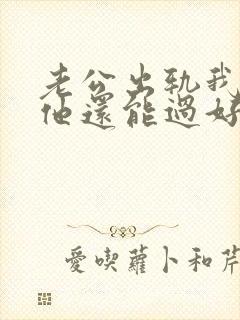 老公出軌我
他還能過好
愛喫蘿卜和芹